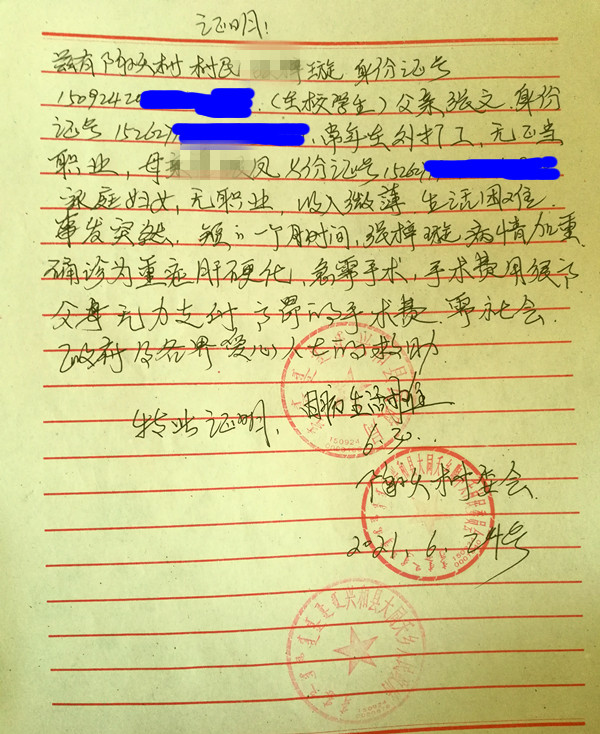 证明：
兹有 村 村民 璇 身份证号
1509242 （在校学生）父亲张文，身份
证号 152627 ，常年在外打工，无正当
职业，母亲 凤 身份证号15262
家庭妇女，无职业，收入微薄 生活困难
事发突然，短短一个月时间，张梓璇病情加重
确诊为重症肝硬化，急需手术，手术费用很高
父母无力支付高昂的手术费，需社会
政府及各界爱心人士的救助
特此证明， 因病生活困难
6.30.
村委会
2021.6.24号
兴和县大同夭乡
150924
兴和县大同夭乡人民政府